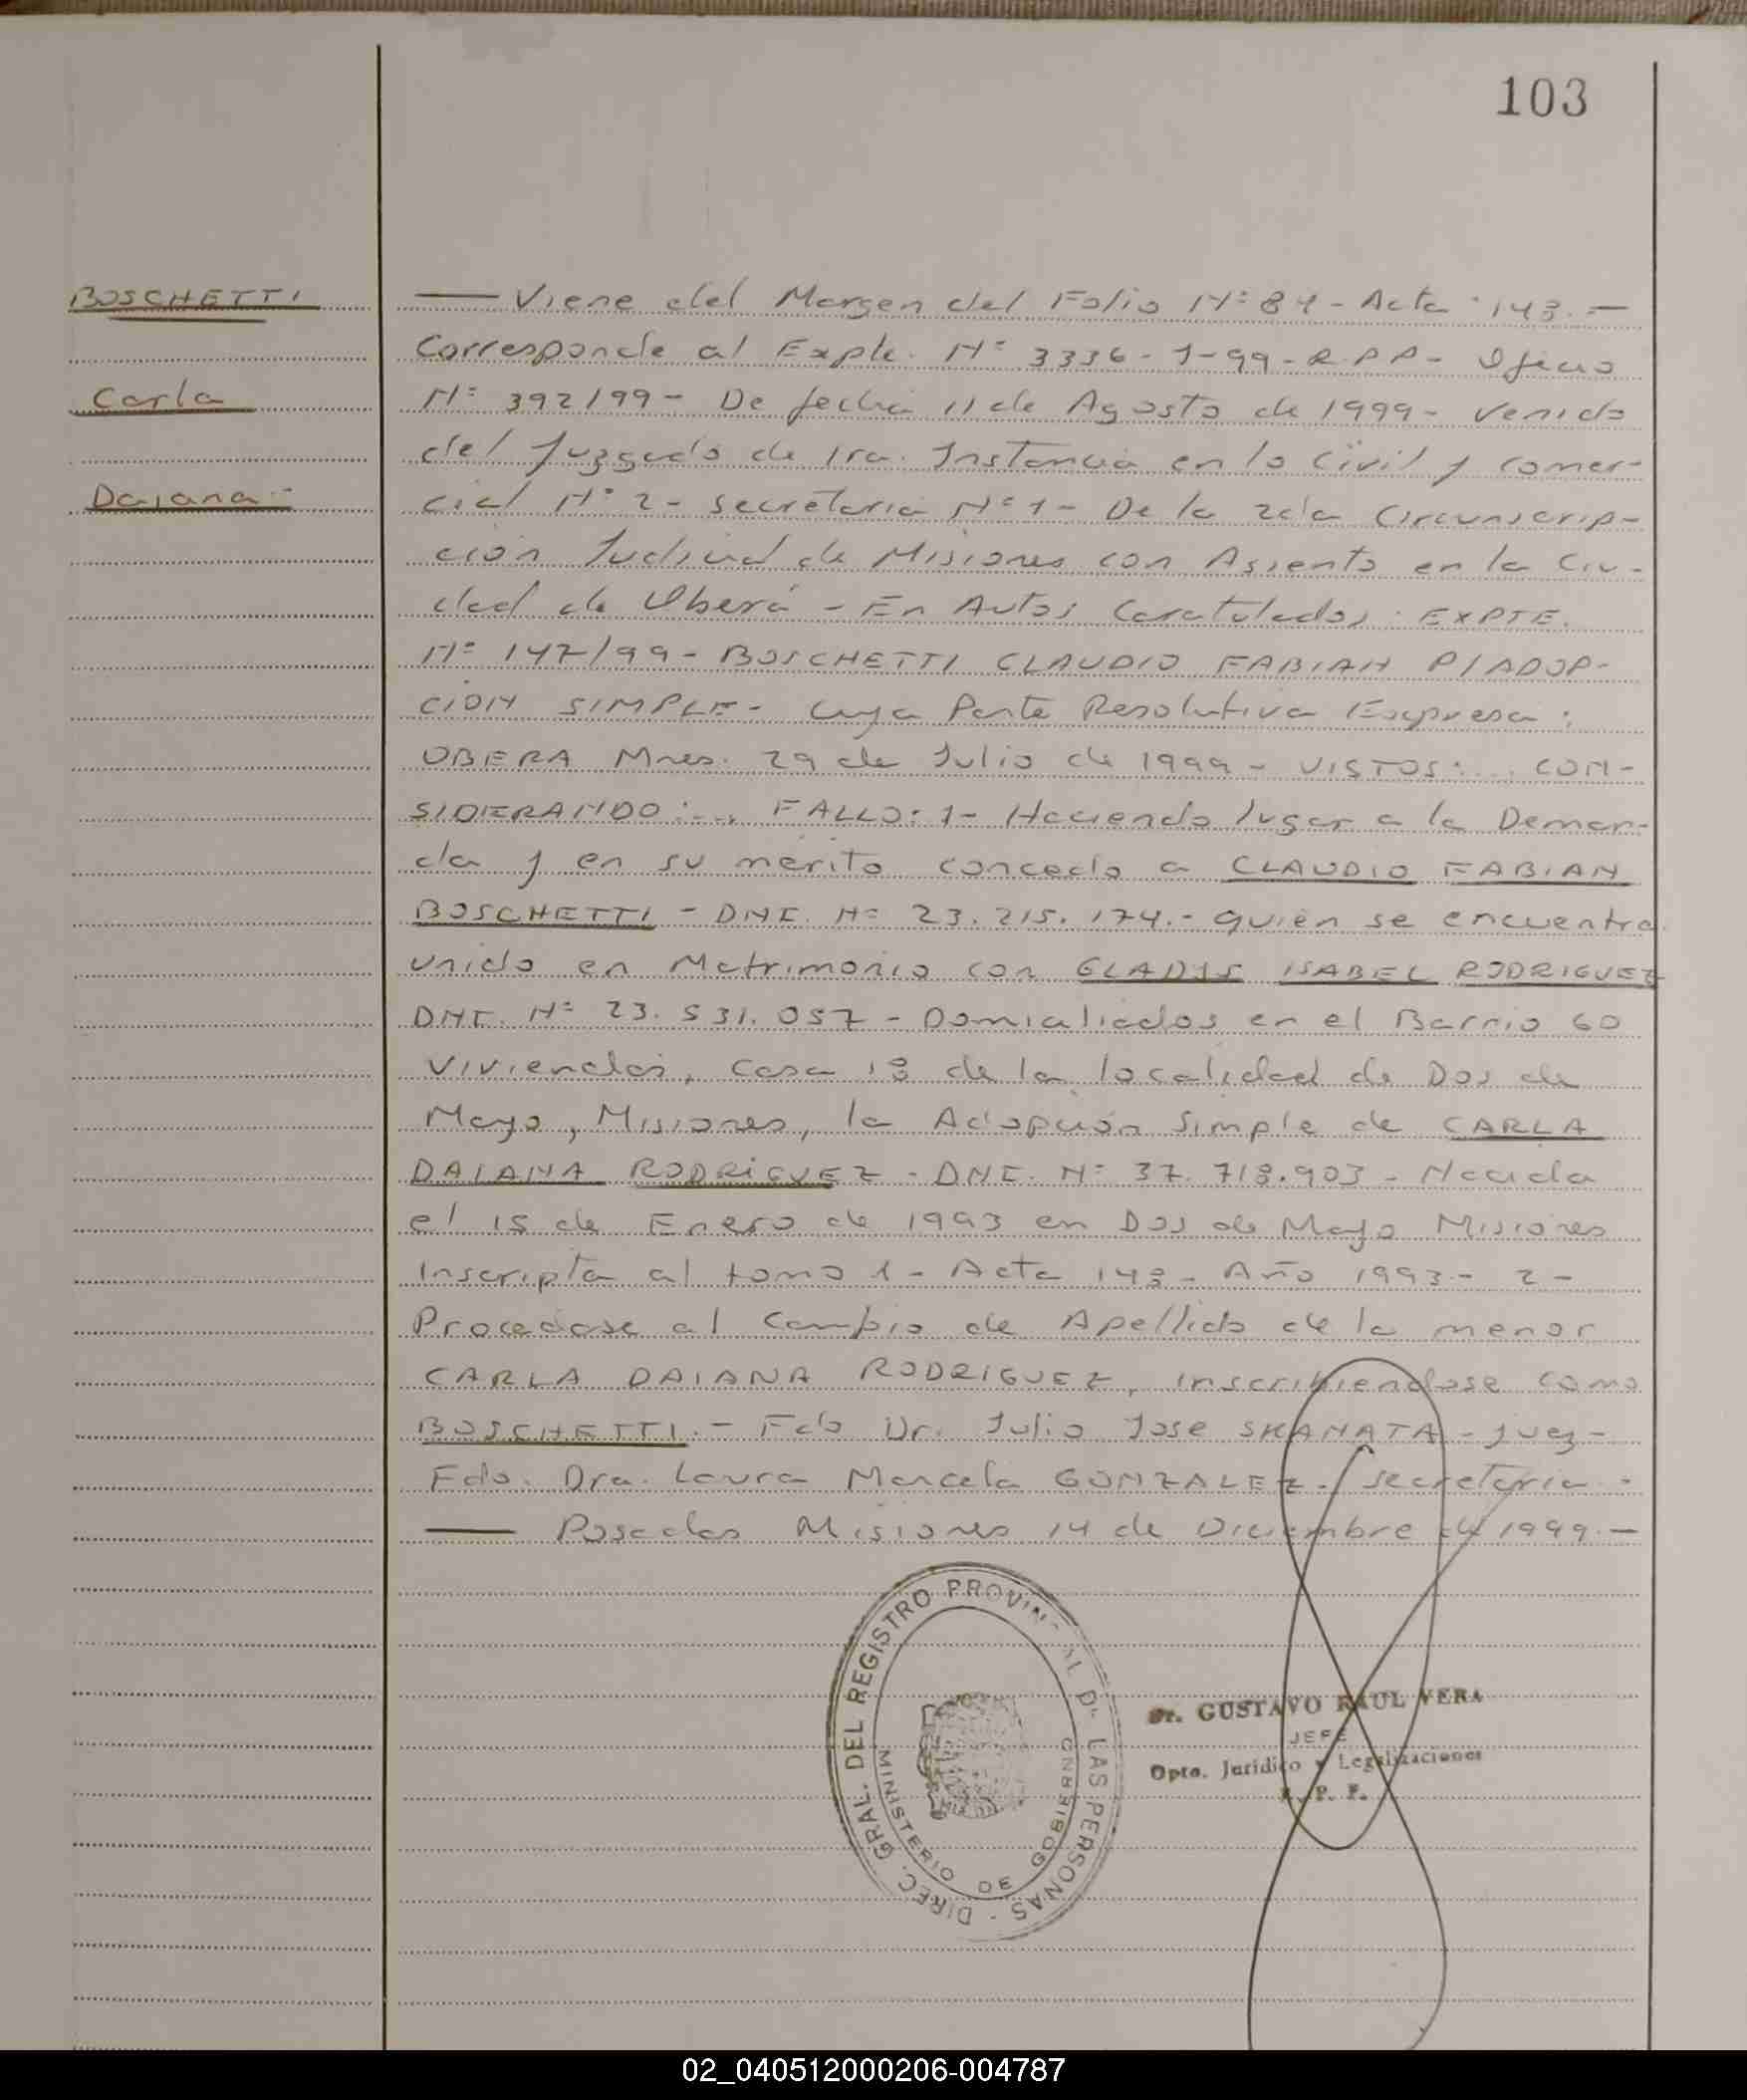 103
BOSCHETTI
Carla
Daiana.-
— Viene del Margen del Folio Nº 84 - Acta 143. —
Corresponde al Expte. Nº 3336-J-99-R.P.P- Oficio
Nº 392/99- De fecha 11 de Agosto de 1999- Venido
del Juzgado de 1ra. Instancia en lo Civil y Comer-
cial Nº 2- Secretaria Nº 1- De la 2da Circunscrip-
ción Judicial de Misiones con Asiento en la Ciu-
dad de Oberá - En Autos Caratulados: EXPTE.
Nº 147/99- BOSCHETTI CLAUDIO FABIAN P/ADOP-
CION SIMPLE- Cuya Parte Resolutiva Expresa:
OBERA Mnes. 29 de Julio de 1999- VISTOS:... CON-
SIDERANDO:... FALLO: 1- Haciendo lugar a la Deman-
da y en su merito concedo a CLAUDIO FABIAN
BOSCHETTI - DNI. Nº 23.215.174.- quien se encuentra
unido en Matrimonio con GLADIS ISABEL RODRIGUEZ
DNI. Nº 23.531.057 - Domiciliados en el Barrio 60
Viviendas, Casa 18 de la localidad de Dos de
Mayo, Misiones, la Adopción Simple de CARLA
DAIANA RODRIGUEZ - DNI. Nº 37.718.903 - Nacida
el 15 de Enero de 1993 en Dos de Mayo Misiones
Inscripta al tomo 1- Acta 143- Año 1993- 2-
Procedase al Cambio de Apellido de la menor
CARLA DAIANA RODRIGUEZ, inscribiendose como
BOSCHETTI.- Fdo Dr. Julio Jose SKANATA - Juez-
Fdo. Dra. Laura Marcela GONZALEZ- Secretaria.-
— Posadas Misiones 14 de Diciembre de 1999.—
DIREC. GRAL. DEL REGISTRO PROVINCIAL DE LAS PERSONAS -
MINISTERIO DE GOBIERNO
Dr. GUSTAVO RAUL VERA
JEFE
Dpto. Jurídico y Legalizaciones
R. P. P.
02_040512000206-004787